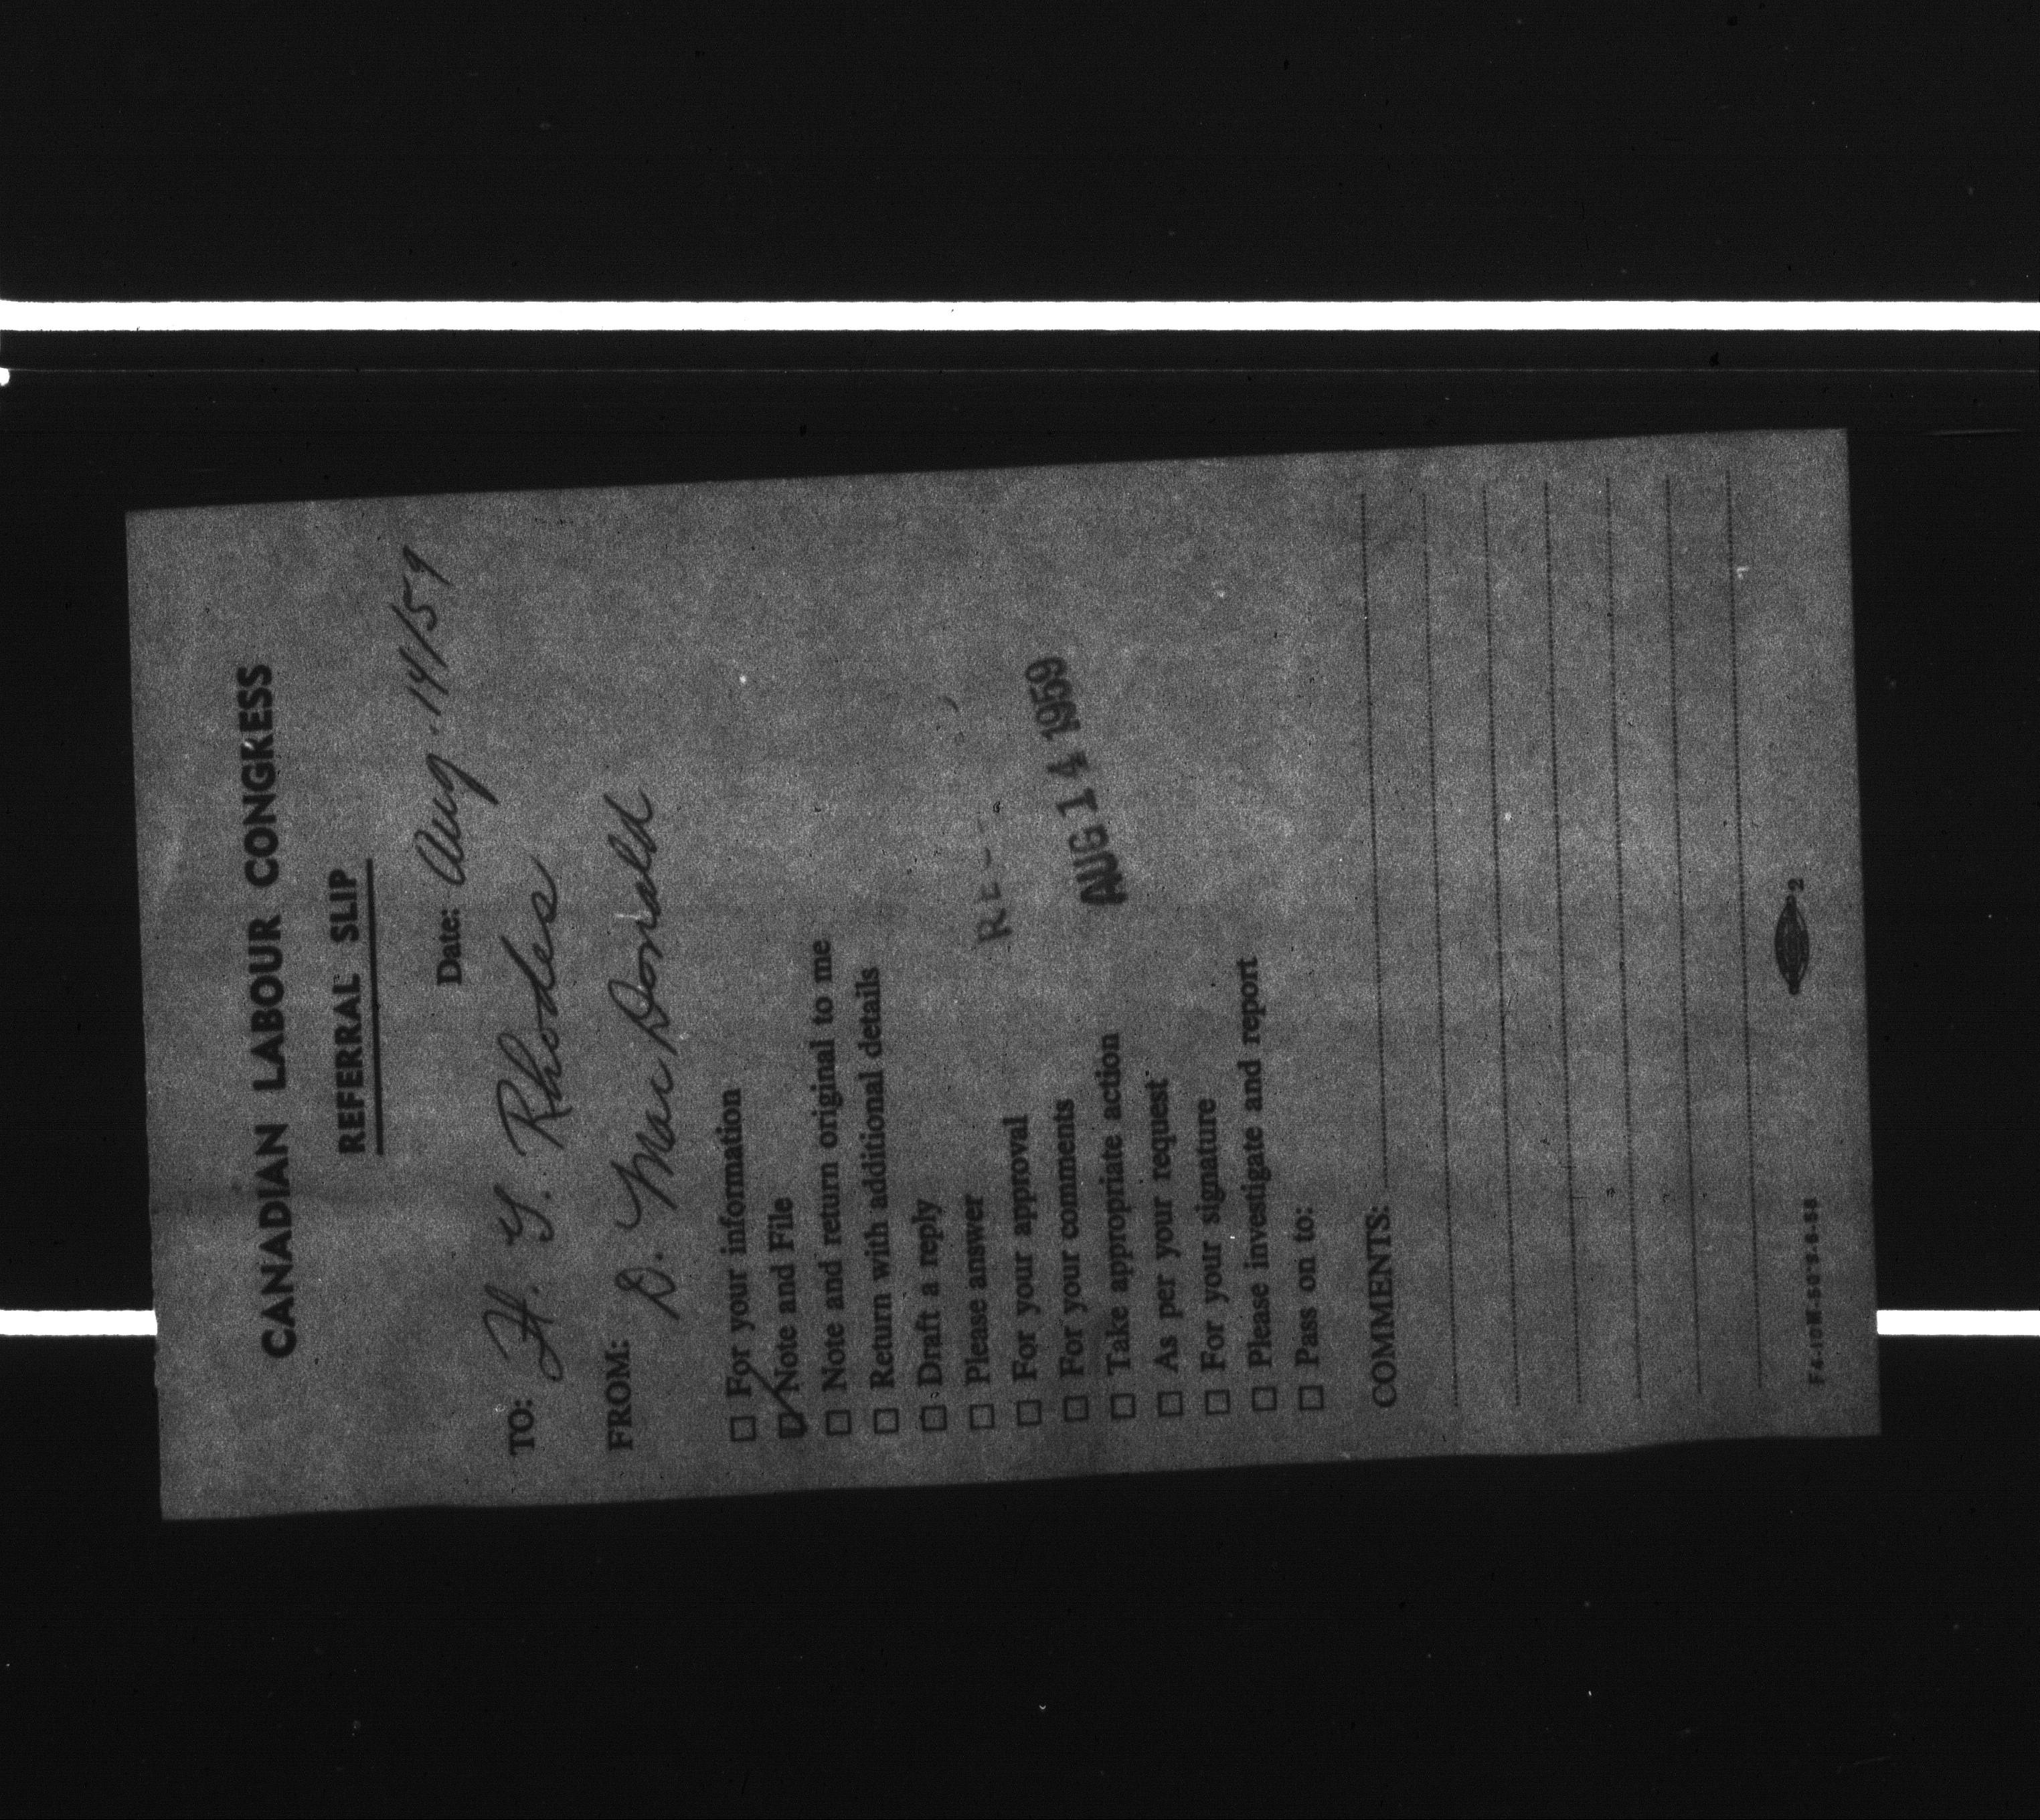 CANADIAN LABOUR CONGRESS
REFERRAL SLIP
Date: Aug. 14/59
TO: H. S. Rhodes
FROM: D. MacDonald
☐ For your information
☑ Note and File
☐ Note and return original to me
☐ Return with additional details
☐ Draft a reply
☐ Please answer
☐ For your approval
☐ For your comments
☐ Take appropriate action
☐ As per your request
☐ For your signature
☐ Please investigate and report
☐ Pass on to:
AUG 14 1959
COMMENTS:
F6-10M-50'S-6-58
2